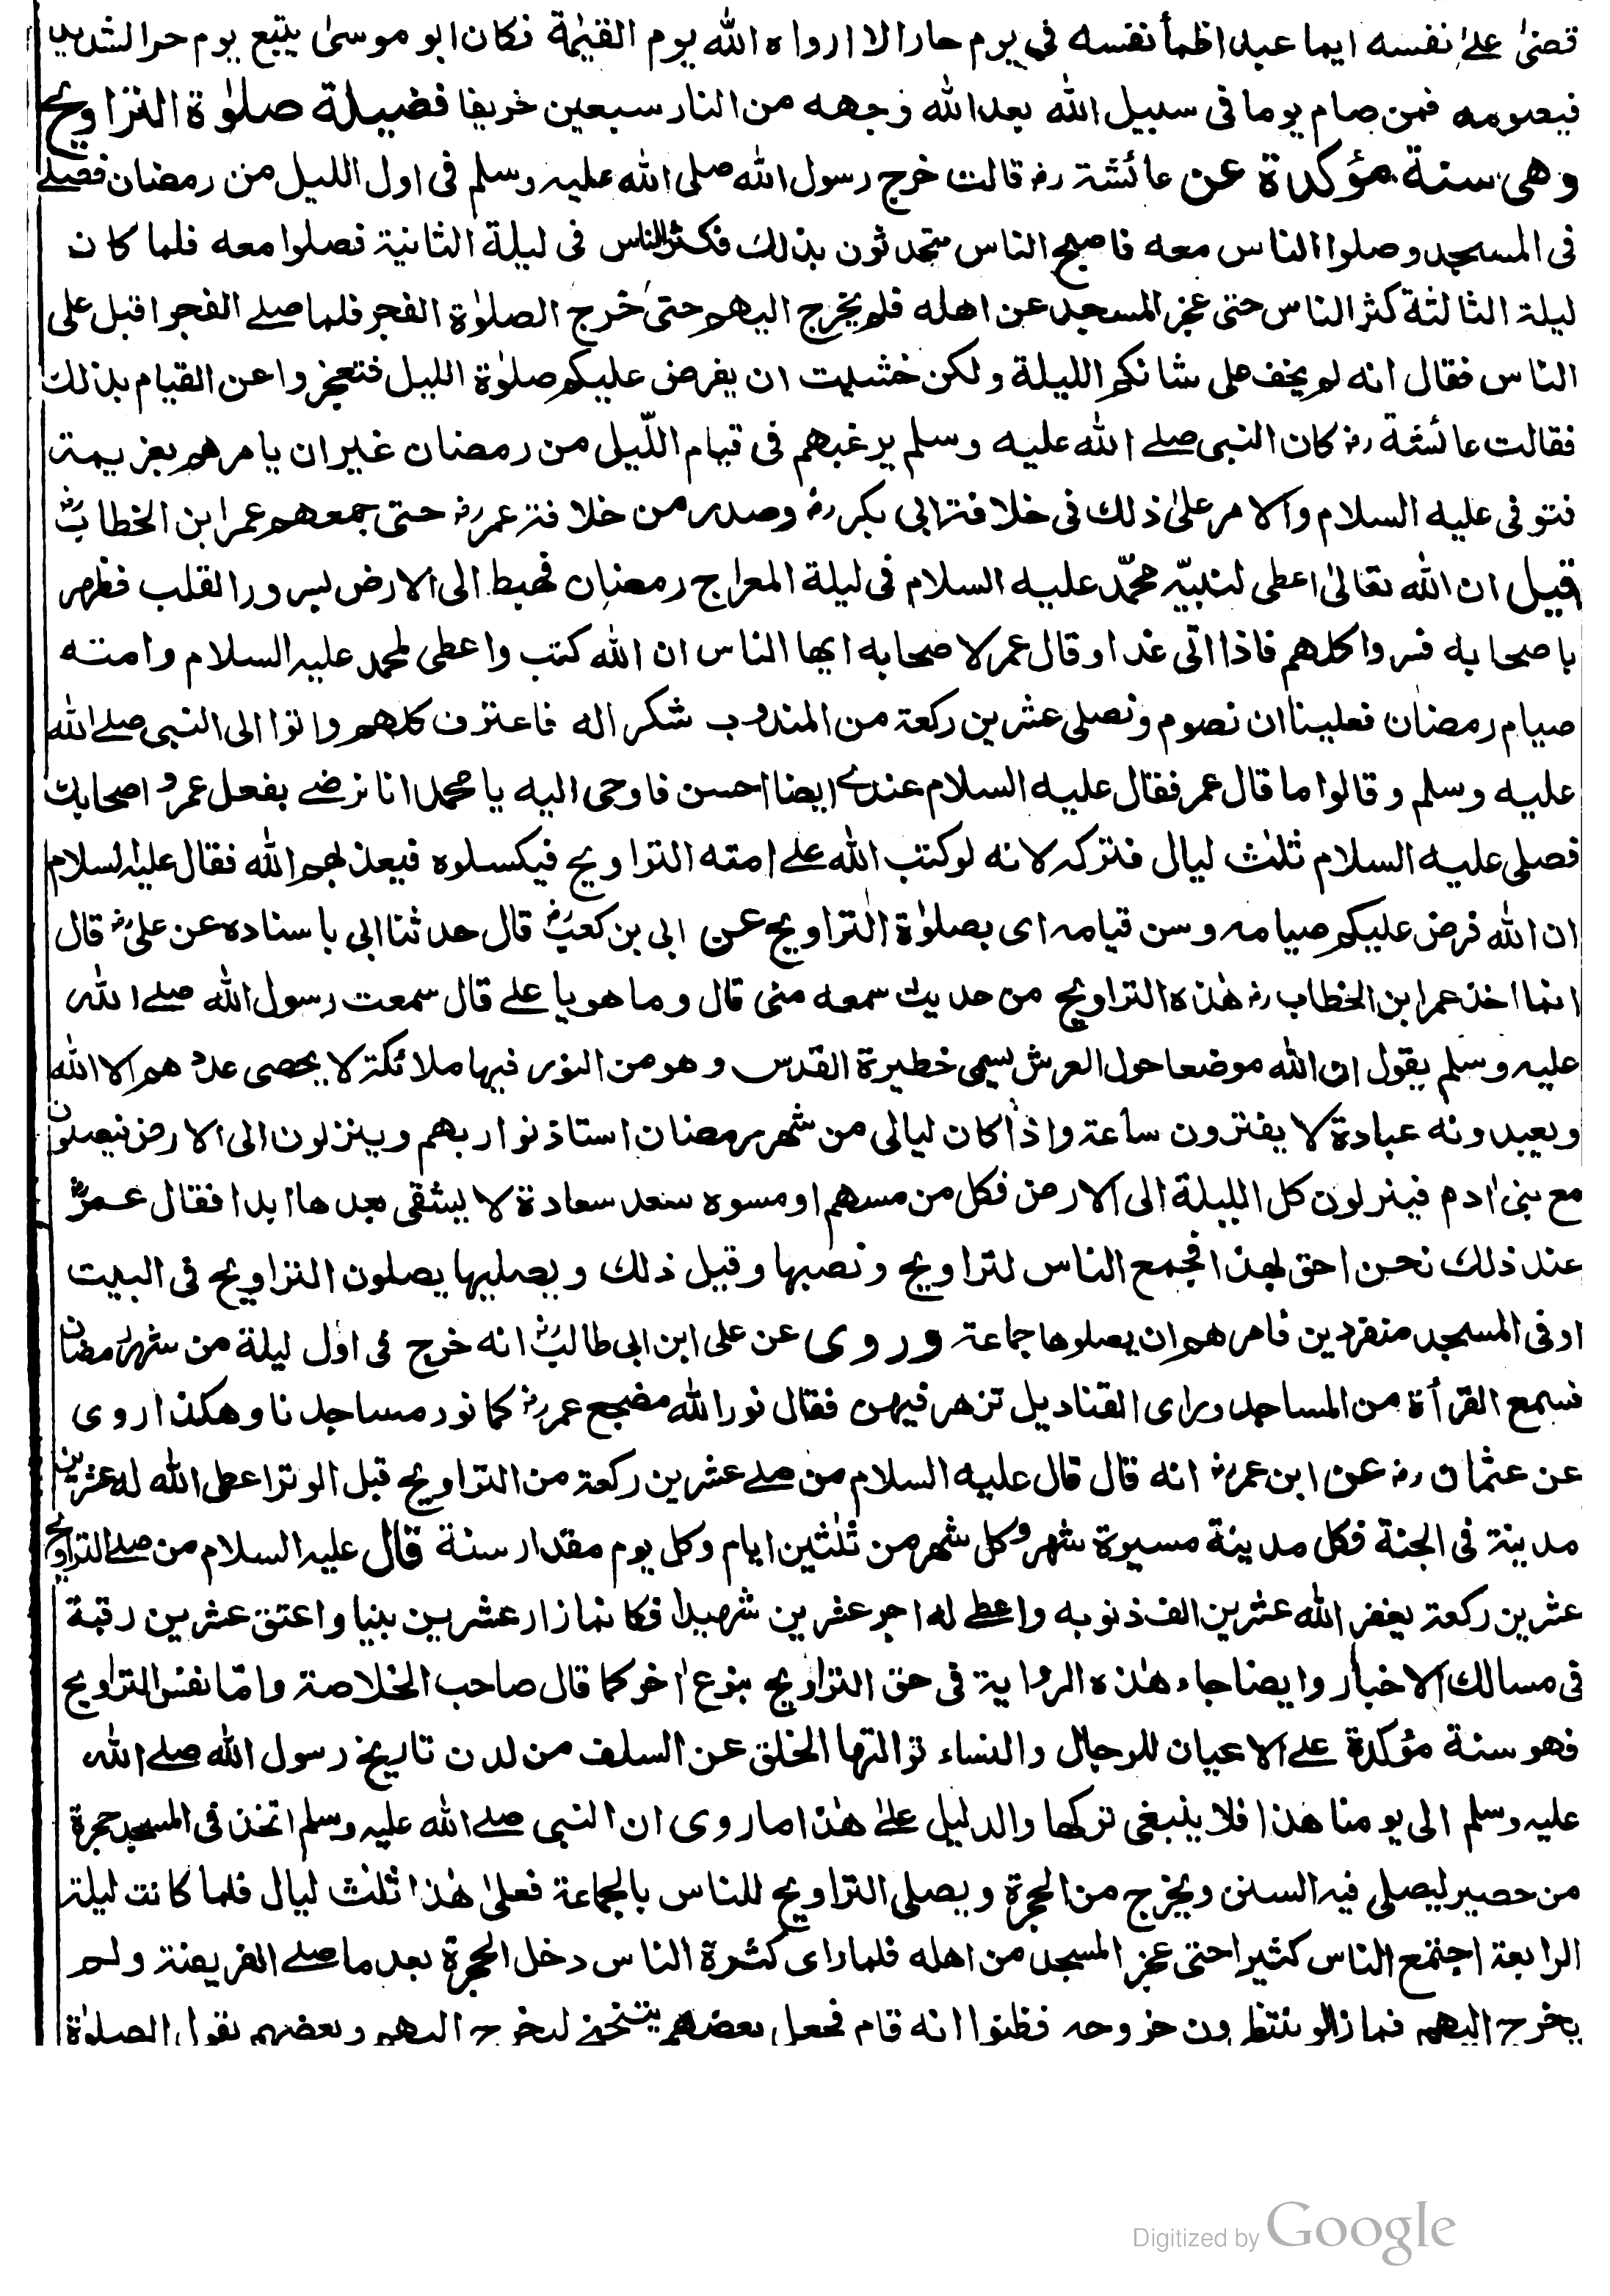 قضىٰ علىٰ نفسه ايما عبد اظمأ نفسه فى يوم حار الا ارواه الله يوم القيٰمة فكان ابو موسىٰ يتبع يوم حر الشديد
فيصومه فمن صام يوما فى سبيل الله بعد الله وجهه من النار سبعين خريفا فضيلة صلوٰة التراويح
وهى سنة مؤكدة عن عائشة رض قالت خرج رسول الله صلى الله عليه وسلم فى اول الليل من رمضان فصلے
فى المسجد وصلوا الناس معه فاصبح الناس متحدثون بذلك فكثر الناس فى ليلة الثانية فصلوا معه فلما كان
ليلة الثالثة كثر الناس حتى عجز المسجد عن اهله فلم يخرج اليهم حتى خرج الصلوٰة الفجر فلما صلے الفجر اقبل على
الناس فقال انه لم يخف على شانكم الليلة ولكن خشيت ان يفرض عليكم صلوٰة الليل فتعجزوا عن القيام بذلك
فقالت عائشة رض كان النبى صلے الله عليه وسلم يرغبهم فى قيام اللّيل من رمضان غير ان يامرهم بعزيمة
فتوفى عليه السلام والامر علىٰ ذلك فى خلافة ابى بكر رض وصدر من خلافة عمر رض حتى جمعهم عمر ابن الخطاب رض
قيل ان الله تعالىٰ اعطى لنبيّه محمّد عليه السلام فى ليلة المعراج رمضان فهبط الى الارض بسرور القلب فظهر
باصحابه فسروا كلهم فاذا اتى غدا وقال عمر لاصحابه ايها الناس ان الله كتب واعطى لمحمد عليه السلام وامته
صيام رمضان فعلينا ان نصوم ونصلى عشرين ركعة من المندوب شكرا له فاعترف كلهم واتوا الى النبى صلے الله
عليه وسلم وقالوا ما قال عمر فقال عليه السلام عندے ايضا احسن فاوحى اليه يا محمد انا نرضے بفعل عمر و اصحابك
فصلى عليه السلام ثلٰث ليال فتركه لانه لو كتب الله علے امته التراويح فيكسلوه فيعذبهم الله فقال عليه السلام
ان الله فرض عليكم صيامه وسن قيامه اى بصلوٰة التراويح عن ابى بن كعب رض قال حدثنا ابى باسناده عن على رض قال
انما اخذ عمر ابن الخطاب رض هٰذه التراويح من حديث سمعه منى قال وما هو يا علے قال سمعت رسول الله صلے الله
عليه وسلم يقول ان الله موضعا حول العرش يسمى خطيرة القدس وهو من النور فيها ملائكة لا يحصى عددهم الا الله
ويعبدونه عبادة لا يفترون ساعة واذا كان ليالى من شهر رمضان استاذنوا ربهم وينزلون الى الارض فيصلون
مع بنى اٰدم فينزلون كل الليلة الى الارض فكل من مسهم او مسوه سعد سعادة لا يشقى بعدها ابدا فقال عمر رض
عند ذلك نحن احق بهذا فجمع الناس لتراويح ونصبها وقيل ذلك ويصليها يصلون التراويح فى البيت
او فى المسجد منفردين فامرهم ان يصلوها جماعة وروى عن على ابن ابى طالب رض انه خرج فى اول ليلة من شهر رمضان
فسمع القرأة من المساجد وراى القناديل تزهر فيهن فقال نور الله مضجع عمر رض كما نور مساجدنا وهكذا روى
عن عثمان رض عن ابن عمر رض انه قال قال عليه السلام من صلے عشرين ركعة من التراويح قبل الوتر اعطى الله له عشرين
مدينة فى الجنة فكل مدينة مسيرة شهر وكل شهر من ثلٰثين ايام وكل يوم مقدار سنة قال عليه السلام من صلے التراويح
عشرين ركعة يغفر الله عشرين الف ذنوبه واعطے له اجر عشرين شهيدا فكانما زار عشرين بنيا واعتق عشرين رقبة
فى مسالك الاخبار وايضا جاء هٰذه الرواية فى حق التراويح بنوع اٰخر كما قال صاحب الخلاصة وامّا نفس التراويح
فهو سنة مؤكدة علے الاعيان للرجال والنساء توالتها الخلق عن السلف من لدن تاريخ رسول الله صلے الله
عليه وسلم الى يومنا هذا فلا ينبغى تركها والدليل علىٰ هٰذا ما روى ان النبى صلے الله عليه وسلم اتخذ فى المسجد حجرة
من حصير ليصلى فيه السنن ويخرج من الحجرة ويصلى التراويح للناس بالجماعة فعلىٰ هٰذا ثلٰث ليال فلما كانت ليلة
الرابعة اجتمع الناس كثيرا حتى عجز المسجد من اهله فلما راى كثرة الناس دخل الحجرة بعد ما صلے الفريضة ولم
يخرج اليهم فما زالو ينتظرون خروجه فظنوا انه قام فجعل بعضهم يتنحنح ليخرج اليهم وبعضهم يقول الصلوٰة
Digitized by Google